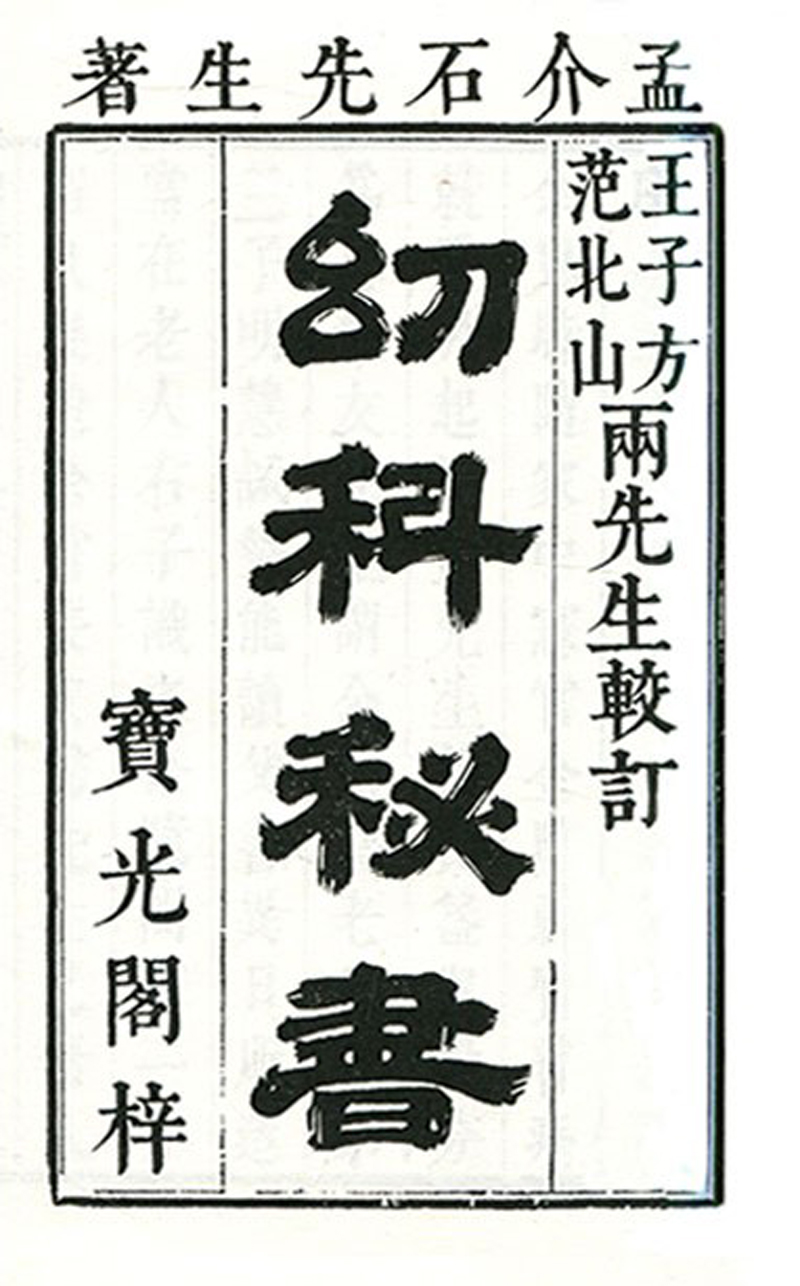 孟介石先生著
王子方
范北山
兩先生較訂
幼科秘書
寶光閣梓